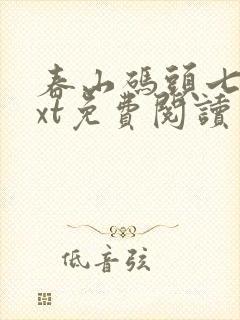 春山碼頭七
xt免費閱讀
低音弦